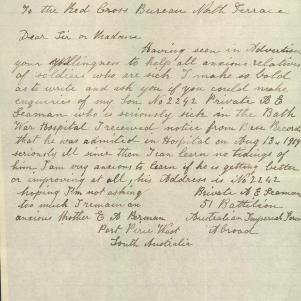 To the Red Cross Bureau North Terrace
Dear Sir or Madame
Having seen in Advertiser
your Willingness to help all anxious relatives
of soldiers who are sick I make so bold
as to write and ask you if you could make
enquiries of my Son No 2242 Private A E
Seaman who is seriously sick in the Bath
War Hospital I received notice from Base Records
that he was admitted in Hospital on Aug 13th
seriously ill since then I can learn no tidings of
him I am very anxious to learn if he is getting better
or improving at all, his Address is No 2242
hoping I'm not asking Private A E Seaman
too much I remain an 51 Battilion
anxious Mother E A Australian Imperial Force
Port Pirie West Abroad
South Australia